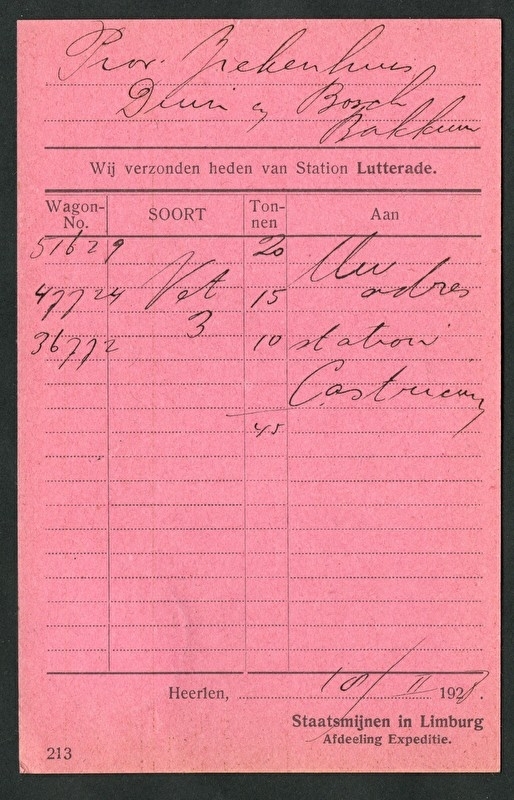 Prov. Ziekenhuis
Duin en Bosch
Bakkum
Wij verzonden heden van Station Lutterade.
Wagon-No. SOORT Ton-nen Aan
51629 20 Uw
47724 Vet 15 adres
3
36772 10 station
Castricum
45
Heerlen, 18/II 1928.
Staatsmijnen in Limburg
Afdeeling Expeditie.
213